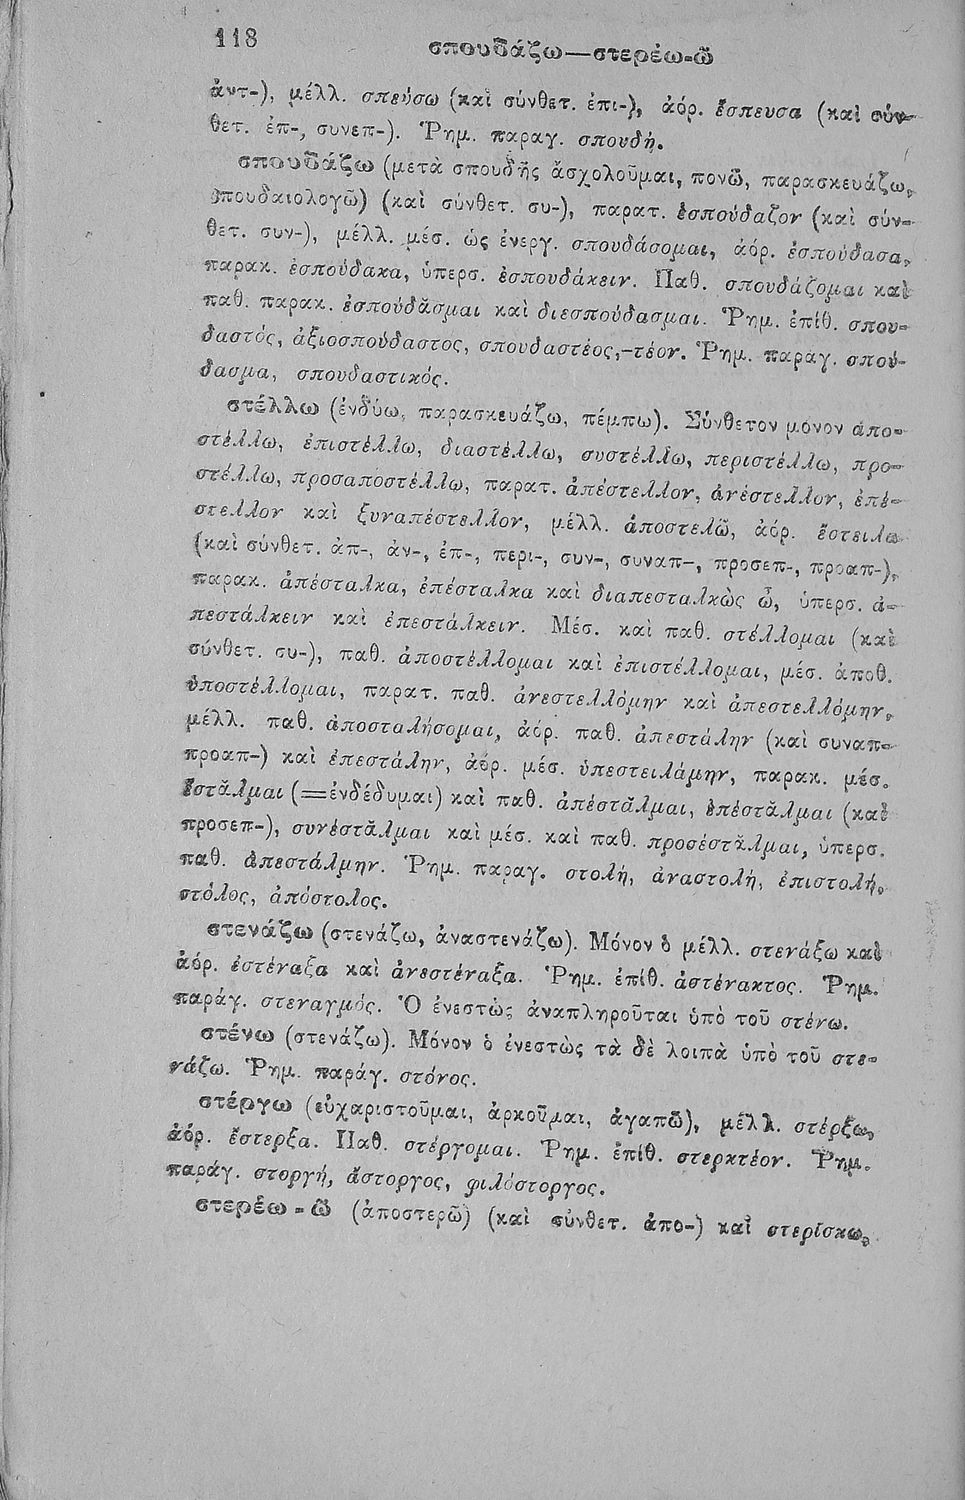 118
σπουδάζω—στερέω-ῶ
ἀντ-), μέλλ. σπεύσω (καὶ σύνθετ. ἐπι-), ἀόρ. ἔσπευσα (καὶ σύν-
θετ. ἐπ-, συνεπ-). Ῥημ. παραγ. σπουδή.
σπουδάζω (μετὰ σπουδῆς ἀσχολοῦμαι, πονῶ, παρασκευάζω,
σπουδαιολογῶ) (καὶ σύνθετ. συ-), παρατ. ἐσπούδαζον (καὶ σύν-
θετ. συν-), μέλλ. μέσ. ὡς ἐνεργ. σπουδάσομαι, ἀόρ. ἐσπούδασα,
παρακ. ἐσπούδακα, ὑπερσ. ἐσπουδάκειν. Παθ. σπουδάζομαι καὶ
παθ. παρακ. ἐσπούδᾰσμαι καὶ διεσπούδασμαι. Ῥημ. ἐπίθ. σπου-
δαστός, ἀξιοσπούδαστος, σπουδαστέος,-τέον. Ῥημ. παράγ. σπού-
δασμα, σπουδαστικός.
στέλλω (ἐνδύω, παρασκευάζω, πέμπω). Σύνθετον μόνον ἀπο-
στέλλω, ἐπιστέλλω, διαστέλλω, συστέλλω, περιστέλλω, προ-
στέλλω, προσαποστέλλω, παρατ. ἀπέστελλον, ἀνέστελλον, ἐπέ-
στελλον καὶ ξυναπέστελλον, μέλλ. ἀποστελῶ, ἀόρ. ἔστειλα
(καὶ σύνθετ. ἀπ-, ἀν-, ἐπ-, περι-, συν-, συναπ-, προσεπ-, προαπ-),
παρακ. ἀπέσταλκα, ἐπέσταλκα καὶ διαπεσταλκὼς ὦ, ὑπερσ. ἀ-
πεστάλκειν καὶ ἐπεστάλκειν. Μέσ. καὶ παθ. στέλλομαι (καὶ
σύνθετ. συ-), παθ. ἀποστέλλομαι καὶ ἐπιστέλλομαι, μέσ. ἀποθ.
ὑποστέλλομαι, παρατ. παθ. ἀνεστελλόμην καὶ ἀπεστελλόμην,
μέλλ. παθ. ἀποσταλήσομαι, ἀόρ. παθ. ἀπεστάλην (καὶ συναπ-
προαπ-) καὶ ἐπεστάλην, ἀόρ. μέσ. ὑπεστειλάμην, παρακ. μέσ.
ἔστᾰλμαι (=ἐνδέδυμαι) καὶ παθ. ἀπέστᾰλμαι, ἐπέστᾰλμαι (καὶ
προσεπ-), συνέστᾰλμαι καὶ μέσ. καὶ παθ. προσέστᾰλμαι, ὑπερσ.
παθ. ἀπεστάλμην. Ῥημ. παραγ. στολή, ἀναστολή, ἐπιστολή,
στόλος, ἀπόστολος.
στενάζω (στενάζω, ἀναστενάζω). Μόνον ὁ μέλλ. στενάξω καὶ
ἀόρ. ἐστέναξα καὶ ἀνεστέναξα. Ῥημ. ἐπίθ. ἀστένακτος. Ῥημ.
παράγ. στεναγμός. Ὁ ἐνεστὼς ἀναπληροῦται ὑπὸ τοῦ στένω.
στένω (στενάζω). Μόνον ὁ ἐνεστὼς τὰ δὲ λοιπὰ ὑπὸ τοῦ στε-
νάζω. Ῥημ. παράγ. στόνος.
στέργω (εὐχαριστοῦμαι, ἀρκοῦμαι, ἀγαπῶ), μέλλ. στέρξω,
ἀόρ. ἔστερξα. Παθ. στέργομαι. Ῥημ. ἐπίθ. στερκτέον. Ῥημ.
παράγ. στοργή, ἄστοργος, φιλόστοργος.
στερέω - ῶ (ἀποστερῶ) (καὶ σύνθετ. ἀπο-) καὶ στερίσκω,